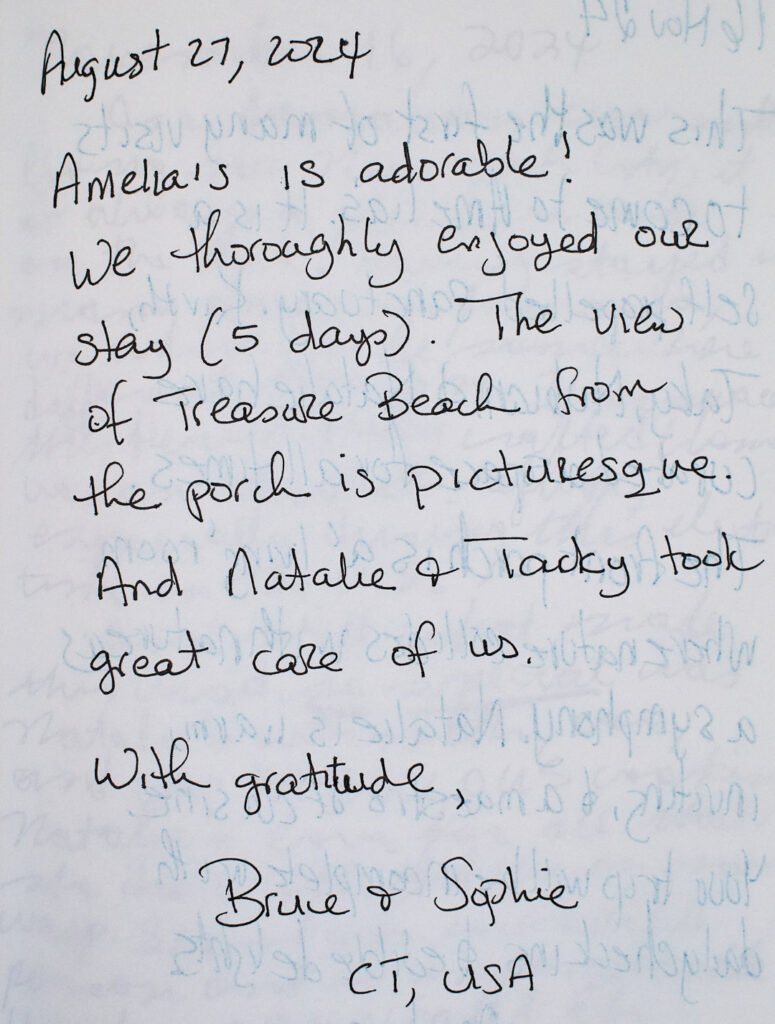 August 27, 2024
Amelia's is adorable!
We thoroughly enjoyed our
stay (5 days). The view
of Treasure Beach from
the porch is picturesque.
And Natalie & Tacky took
great care of us.
With gratitude,
Bruce & Sophie
CT, USA